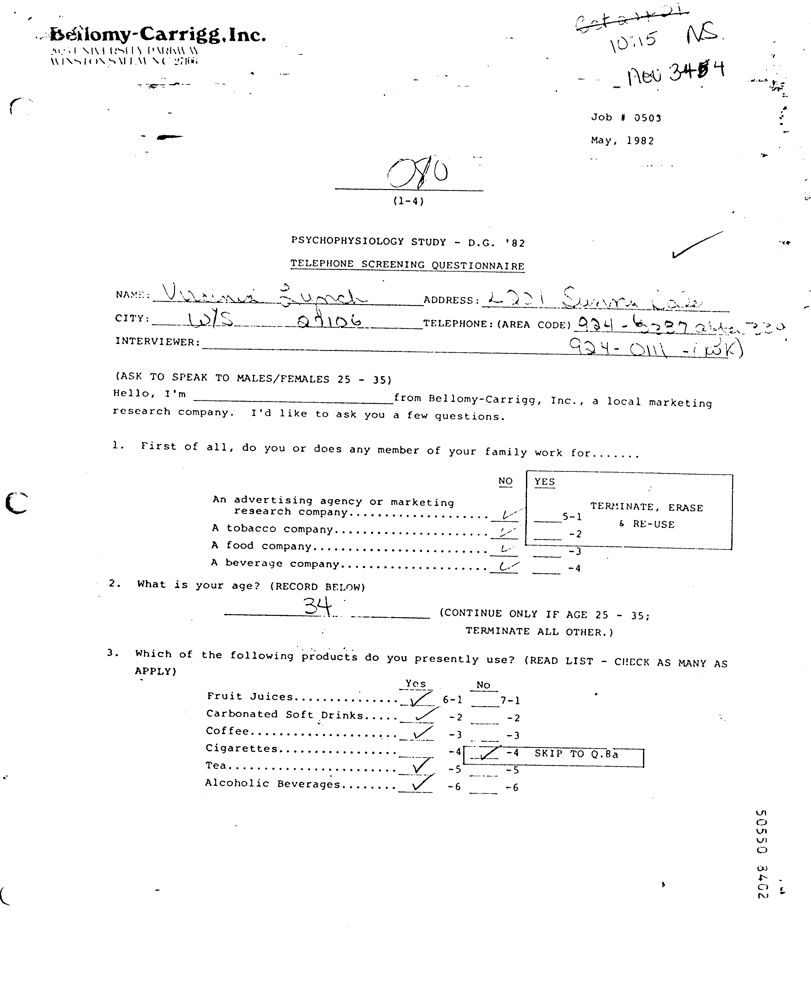 Bellomy-Carrigg, Inc.
UNIVERSITY PARKWAY
WINSTON SALEM NC 27106
10:15 NS.
Job # 0503
May, 1982
080
(1-4)
PSYCHOPHYSIOLOGY STUDY - D.G. '82
TELEPHONE SCREENING QUESTIONNAIRE
NAME: Virginia Lynch ADDRESS:
CITY: W/S 27106 TELEPHONE: (AREA CODE) 924 -
INTERVIEWER: 924-0111 - (wk)
(ASK TO SPEAK TO MALES/FEMALES 25 - 35)
Hello, I'm from Bellomy-Carrigg, Inc., a local marketing
research company. I'd like to ask you a few questions.
1. First of all, do you or does any member of your family work for.......
NO YES
An advertising agency or marketing
research company.................... ✓ 5-1 TERMINATE, ERASE
& RE-USE
A tobacco company...................... ✓ -2
A food company......................... ✓ -3
A beverage company..................... ✓ -4
2. What is your age? (RECORD BELOW)
34 (CONTINUE ONLY IF AGE 25 - 35;
TERMINATE ALL OTHER.)
3. Which of the following products do you presently use? (READ LIST - CHECK AS MANY AS
APPLY)
Yes No
Fruit Juices............... ✓ 6-1 7-1
Carbonated Soft Drinks..... ✓ -2 -2
Coffee..................... ✓ -3 -3
Cigarettes................. -4 ✓ -4 SKIP TO Q.8a
Tea........................ ✓ -5 -5
Alcoholic Beverages........ ✓ -6 -6
50550 8402